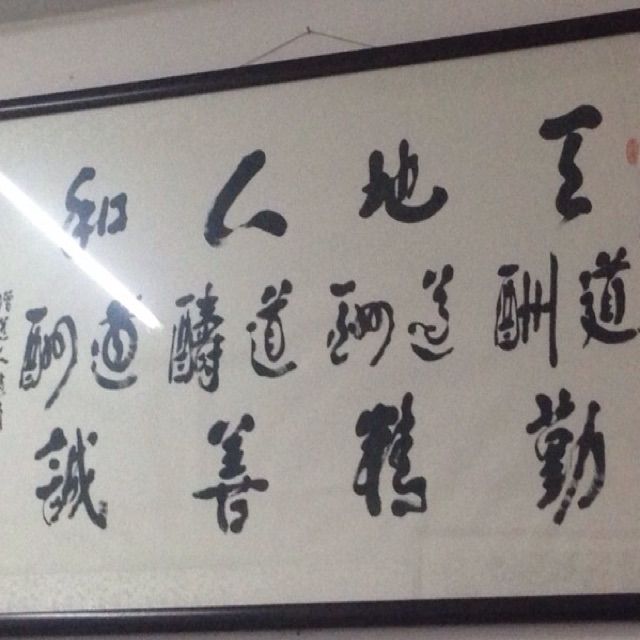 天道酬勤
地道酬精
人道醻善
和道酬誠